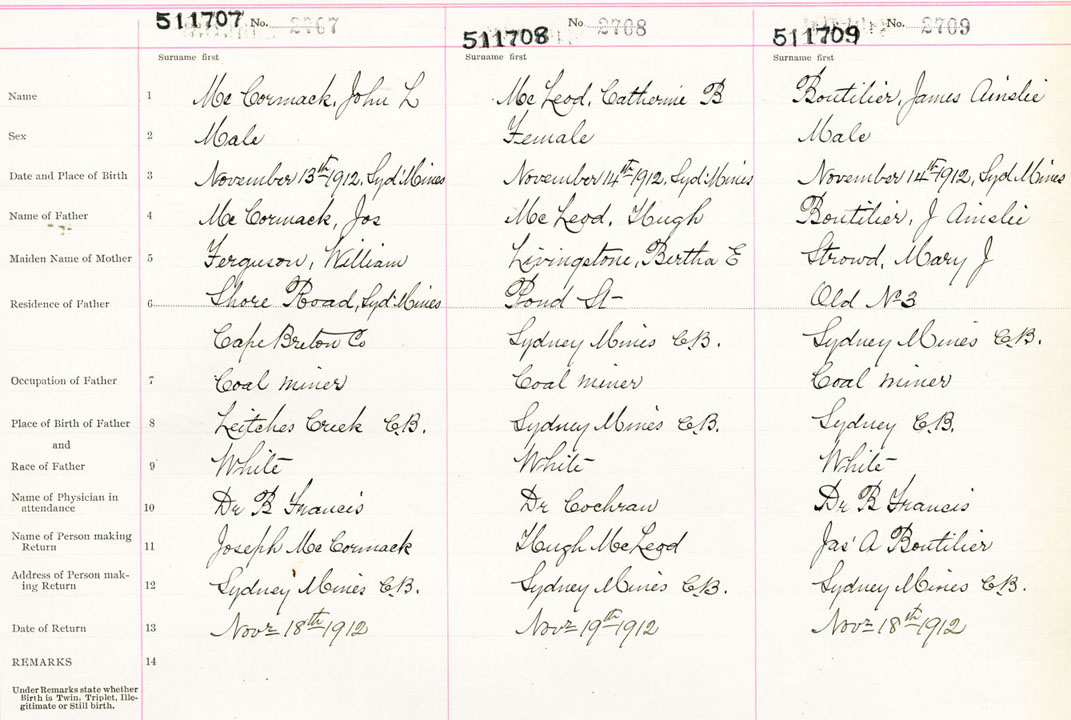 511707 No. 2767
511708 No 2708
511709 No. 2709
Surname first Surname first Surname first
Name 1 Mc Cormack, John L Mc Leod, Catherine B Boutilier, James Ainslie
Sex 2 Male Female Male
Date and Place of Birth 3 November 13th 1912, Syd' Mines November 14th 1912, Syd' Mines November 14th 1912, Syd Mines
Name of Father 4 Mc Cormack, Jos Mc Leod, Hugh Boutilier, J Ainslie
Maiden Name of Mother 5 Ferguson, William Livingstone, Bertha E Strowd, Mary J
Residence of Father 6 Shore Road, Syd' Mines Pond St Old No 3
Cape Breton Co Sydney Mines C.B. Sydney Mines C.B.
Occupation of Father 7 Coal miner Coal miner Coal miner
Place of Birth of Father 8 Leitches Creek C.B. Sydney Mines C.B. Sydney C.B.
and
Race of Father 9 White White White
Name of Physician in
attendance 10 Dr B Francis Dr Cochran Dr B Francis
Name of Person making
Return 11 Joseph Mc Cormack Hugh McLeod Jas' A Boutilier
Address of Person mak-
ing Return 12 Sydney Mines C.B. Sydney Mines C.B. Sydney Mines C.B.
Date of Return 13 Novr 18th 1912 Novr 19th 1912 Novr 18th 1912
REMARKS 14
Under Remarks state whether
Birth is Twin, Triplet, Ille-
gitimate or Still birth.